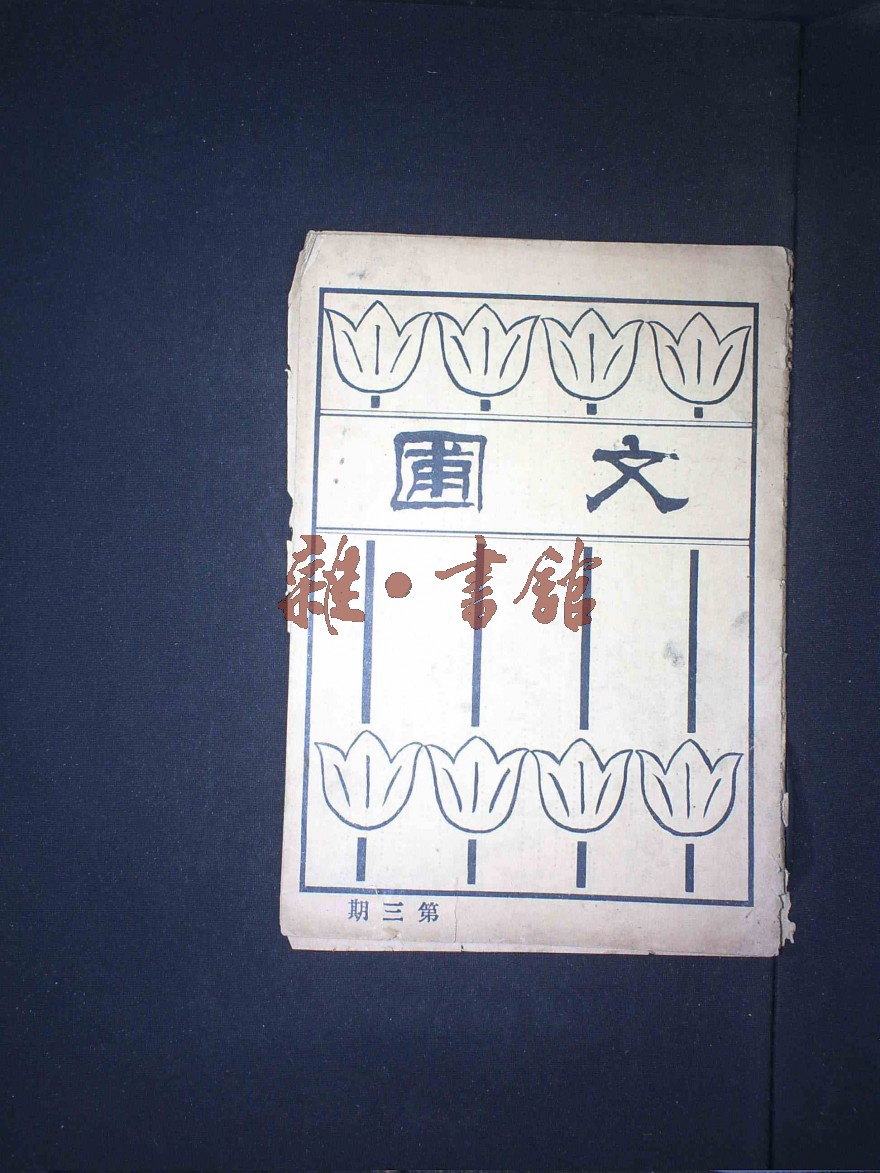 文圃
雜·書館
第三期